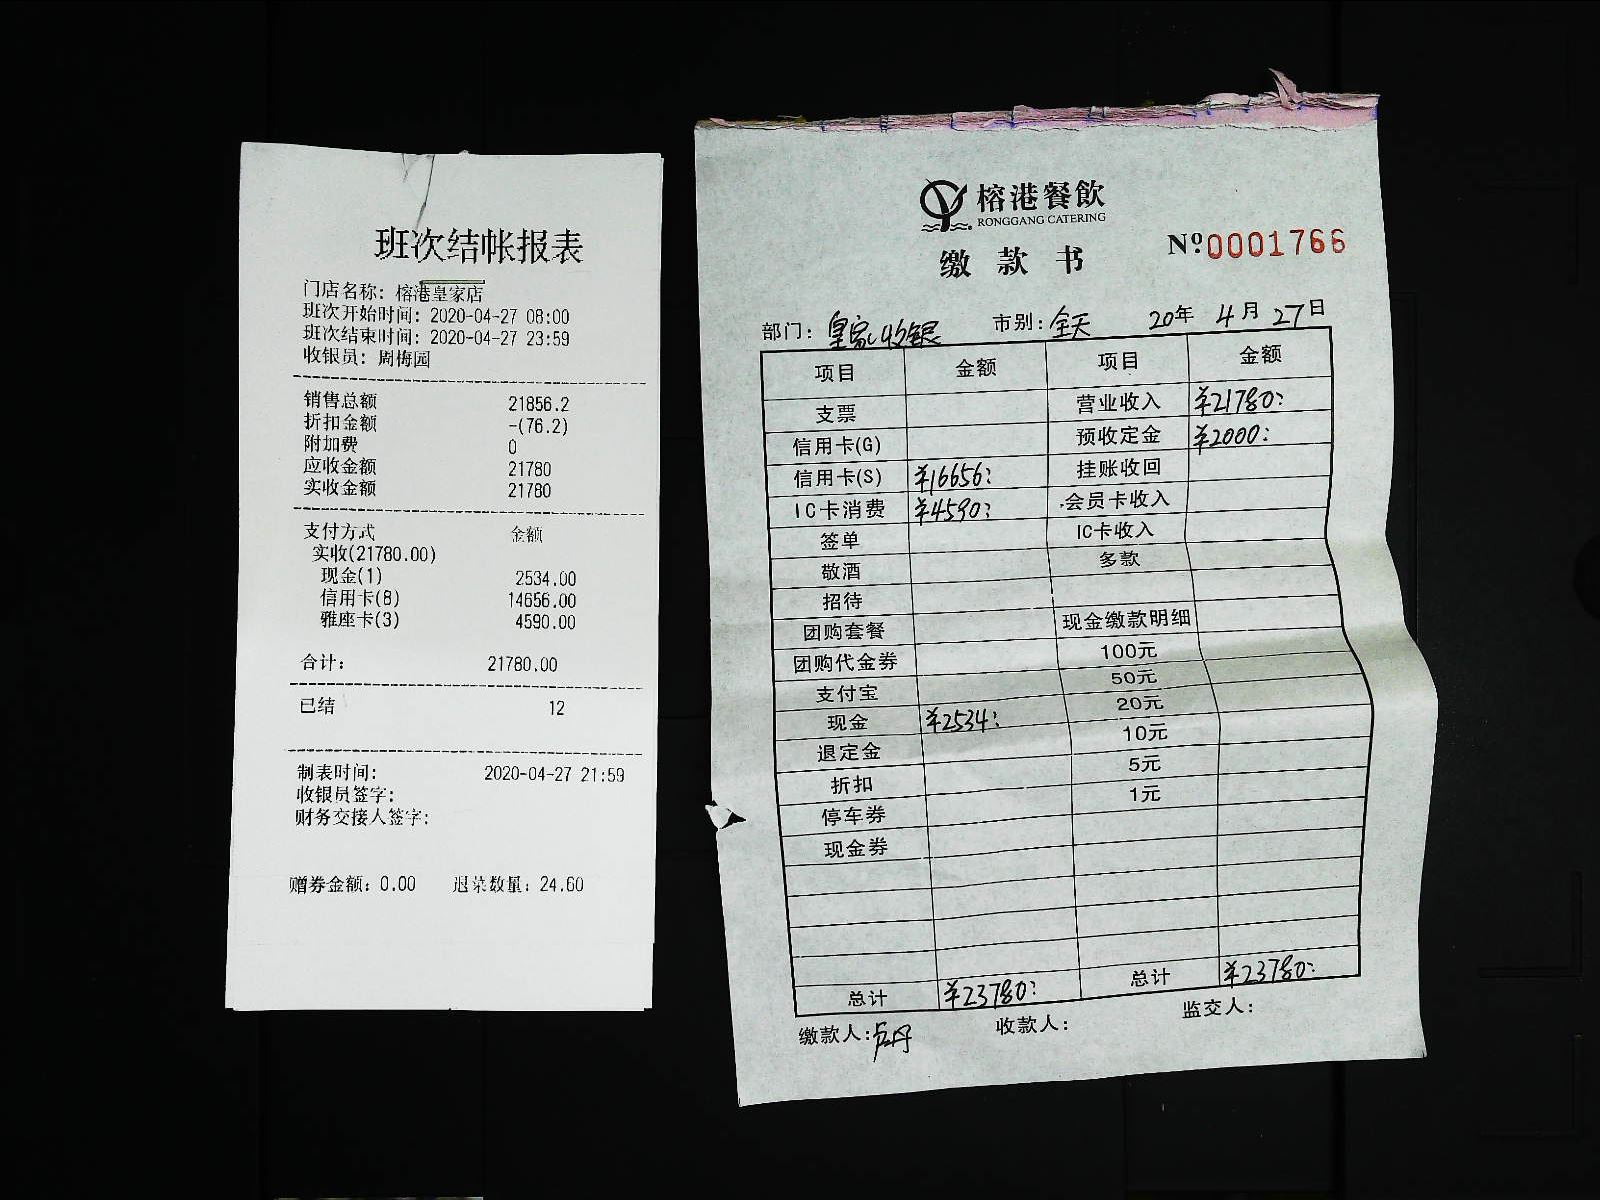 班次结帐报表
门店名称: 榕港皇家店
班次开始时间: 2020-04-27 08:00
班次结束时间: 2020-04-27 23:59
收银员: 周梅园
销售总额 21856.2
折扣金额 -(76.2)
附加费 0
应收金额 21780
实收金额 21780
支付方式 金额
实收(21780.00)
现金(1) 2534.00
信用卡(8) 14656.00
雅座卡(3) 4590.00
合计: 21780.00
已结 12
制表时间: 2020-04-27 21:59
收银员签字:
财务交接人签字:
赠券金额: 0.00 退菜数量: 24.60
榕港餐飲
RONGGANG CATERING
缴款书
Nº0001766
部门: 皇家收银 市别: 全天 20年 4月 27日
项目 金额 项目 金额
支票 营业收入 ¥21780:
信用卡(G) 预收定金 ¥2000:
信用卡(S) ¥16656: 挂账收回
IC卡消费 ¥4590: 会员卡收入
签单 IC卡收入
敬酒 多款
招待
团购套餐 现金缴款明细
团购代金券 100元
支付宝 50元
现金 ¥2534: 20元
退定金 10元
折扣 5元
停车券 1元
现金券
总计 ¥23780: 总计 ¥23780:
缴款人: 卢丹 收款人: 监交人: